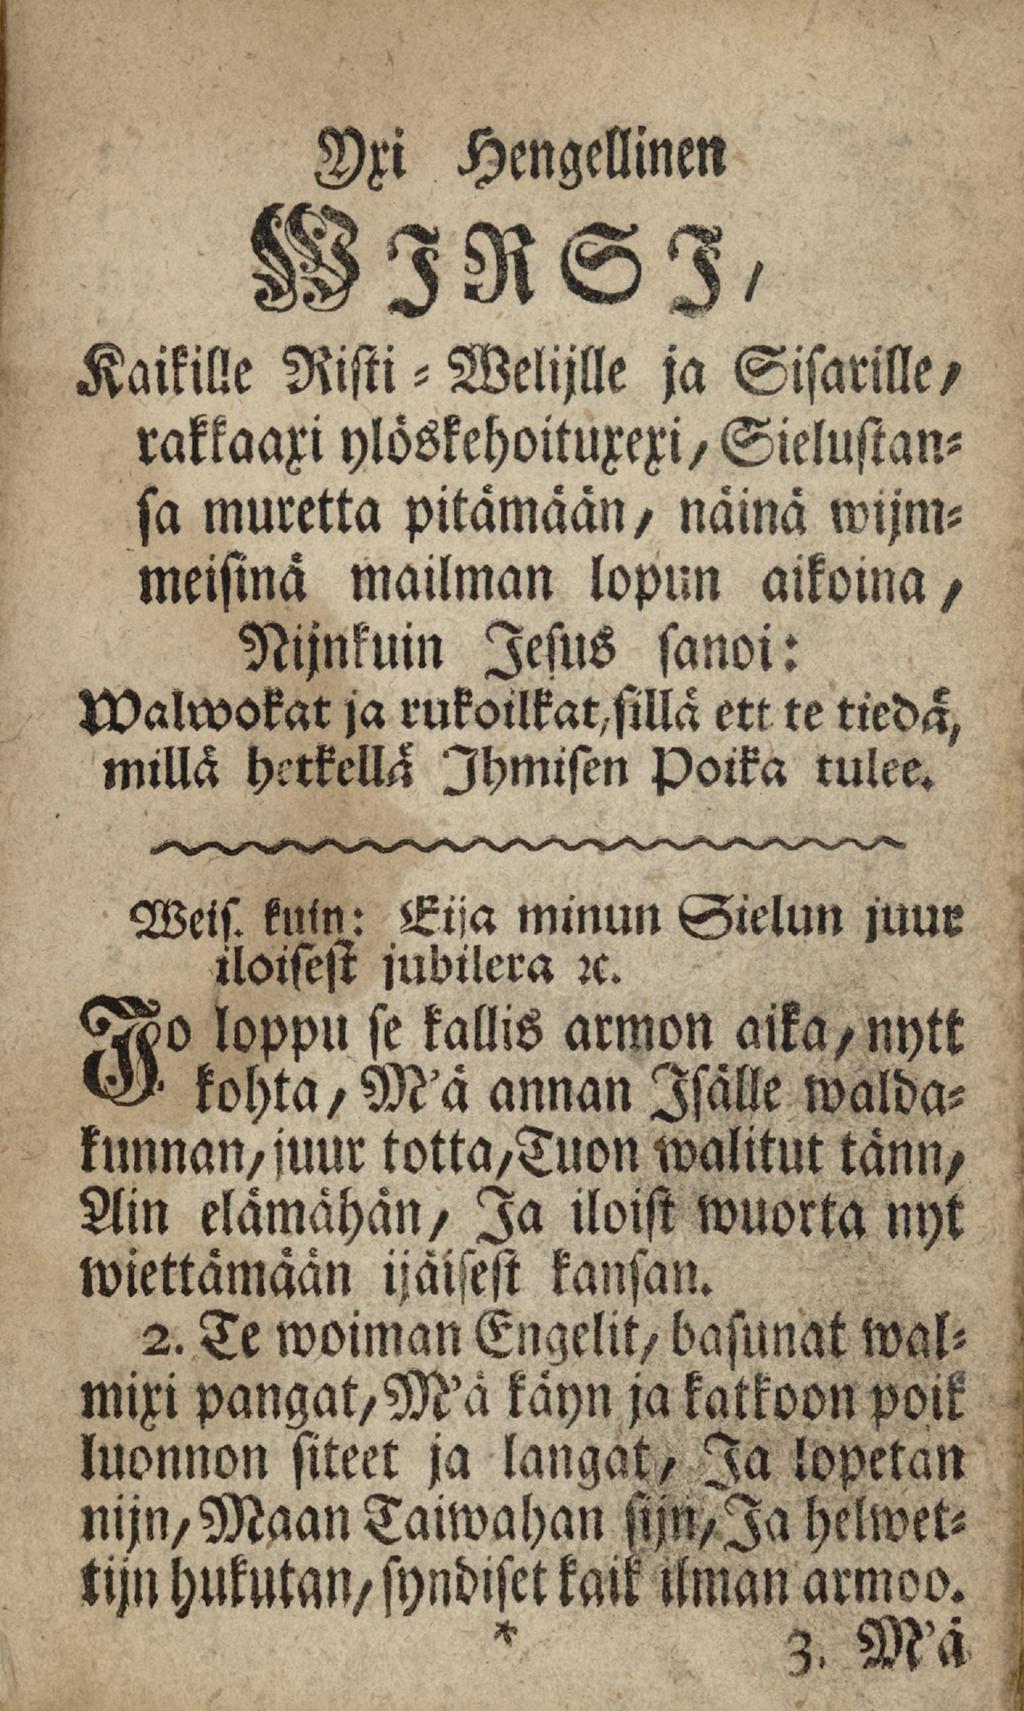 Yxi Hengellinen
WIRSI/
Kaikille Risti-Welijlle ja Sisarille/
rakkaaxi ylöskehoituxexi/ Sielustan-
sa muretta pitämään/ näinä wijm-
meisinä mailman lopun aikoina/
Nijnkuin Jesus sanoi:
Walwokat ja rukoilkat, sillä ett te tiedä,
millä hetkellä Ihmisen Poika tulee.
Weis. kuin: Eija minun Sielun juur
iloisest jubilera ꝛc.
Jo loppu se kallis armon aika/ nytt
kohta/ M'ä annan Isälle walda-
kunnan/ juur totta/ Tuon walitut tänn/
Ain elämähän/ Ja iloist wuorta nyt
wiettämään ijäisest kansan.
2. Te woiman Engelit/ basunat wal-
mixi pangat/ M'ä käyn ja katkoon poik
luonnon siteet ja langat/ Ja lopetan
nijn/ Maan Taiwahan sijn/ Ja helwet-
tijn hukutan/ syndiset kaik ilman armoo.
* 3. M'ä